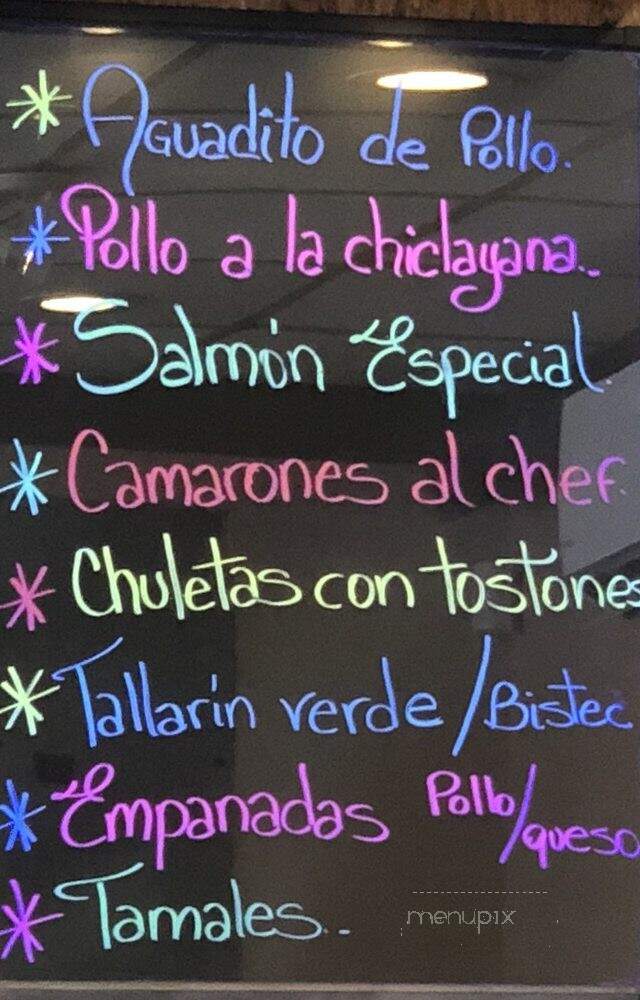 * Aguadito de Pollo.
* Pollo a la chiclayana..
* Salmón Especial.
* Camarones al chef.
* Chuletas con tostones
* Tallarín verde / Bistec
* Empanadas Pollo/queso
* Tamales..
menupix